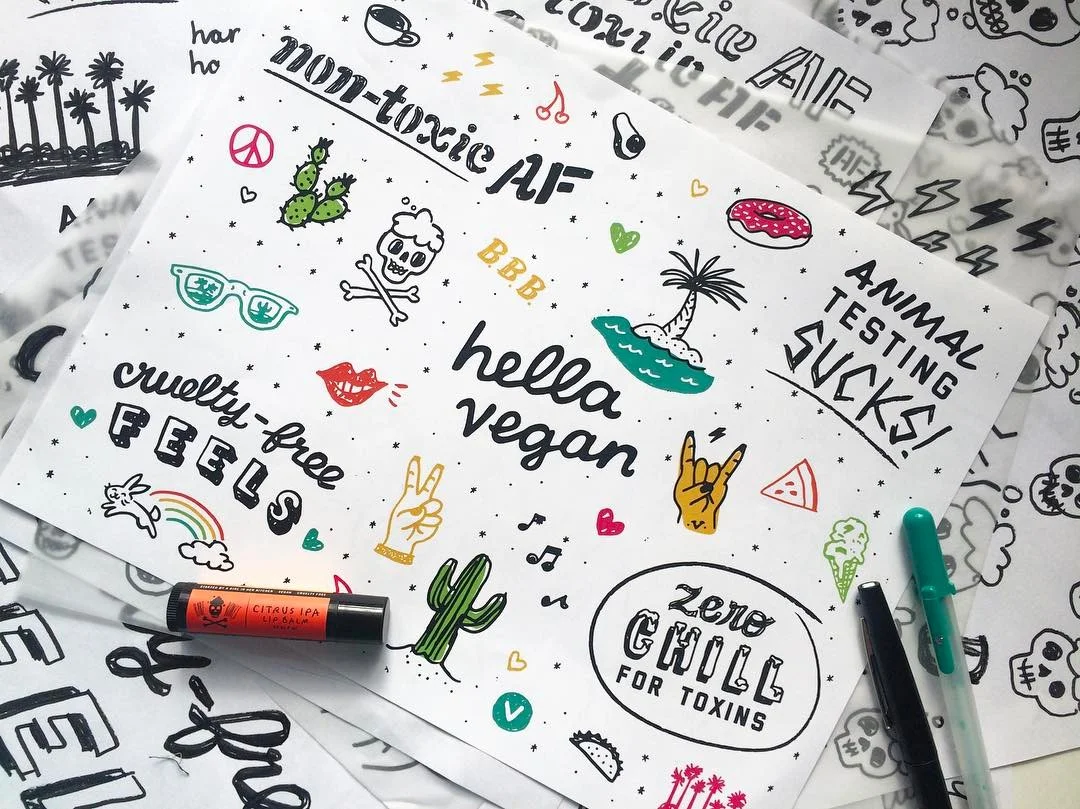 har
ho
non-toxic AF
toxic
AF
AF
AF
B.B.B.
ANIMAL
TESTING
SUCKS!
hella
vegan
cruelty-free
FEELS
CITRUS IPA
LIP BALM
zero
CHILL
FOR TOXINS
V